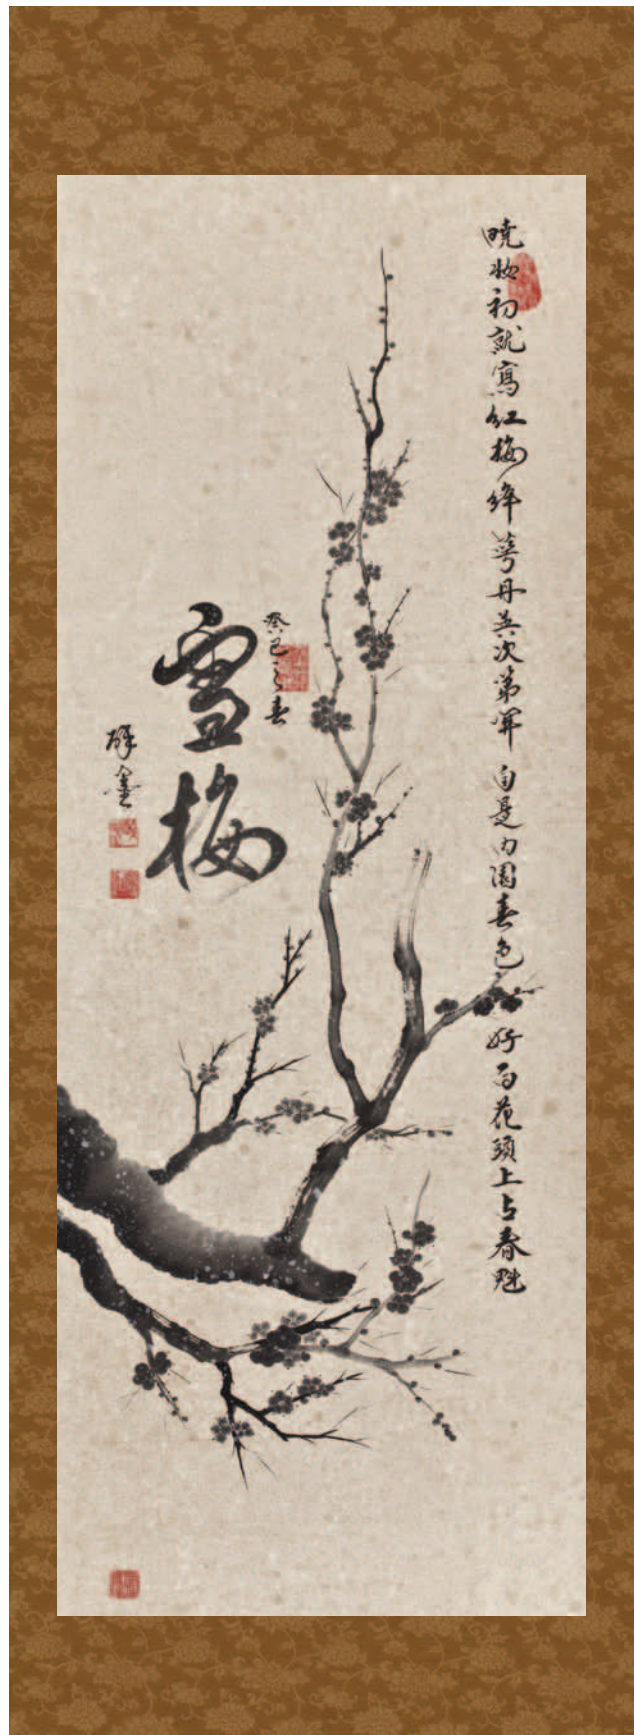 曉妝初就寫紅梅絳萼丹英次第開自是內園春色好百花頭上占春魁
癸巳之春
雪梅
醉墨